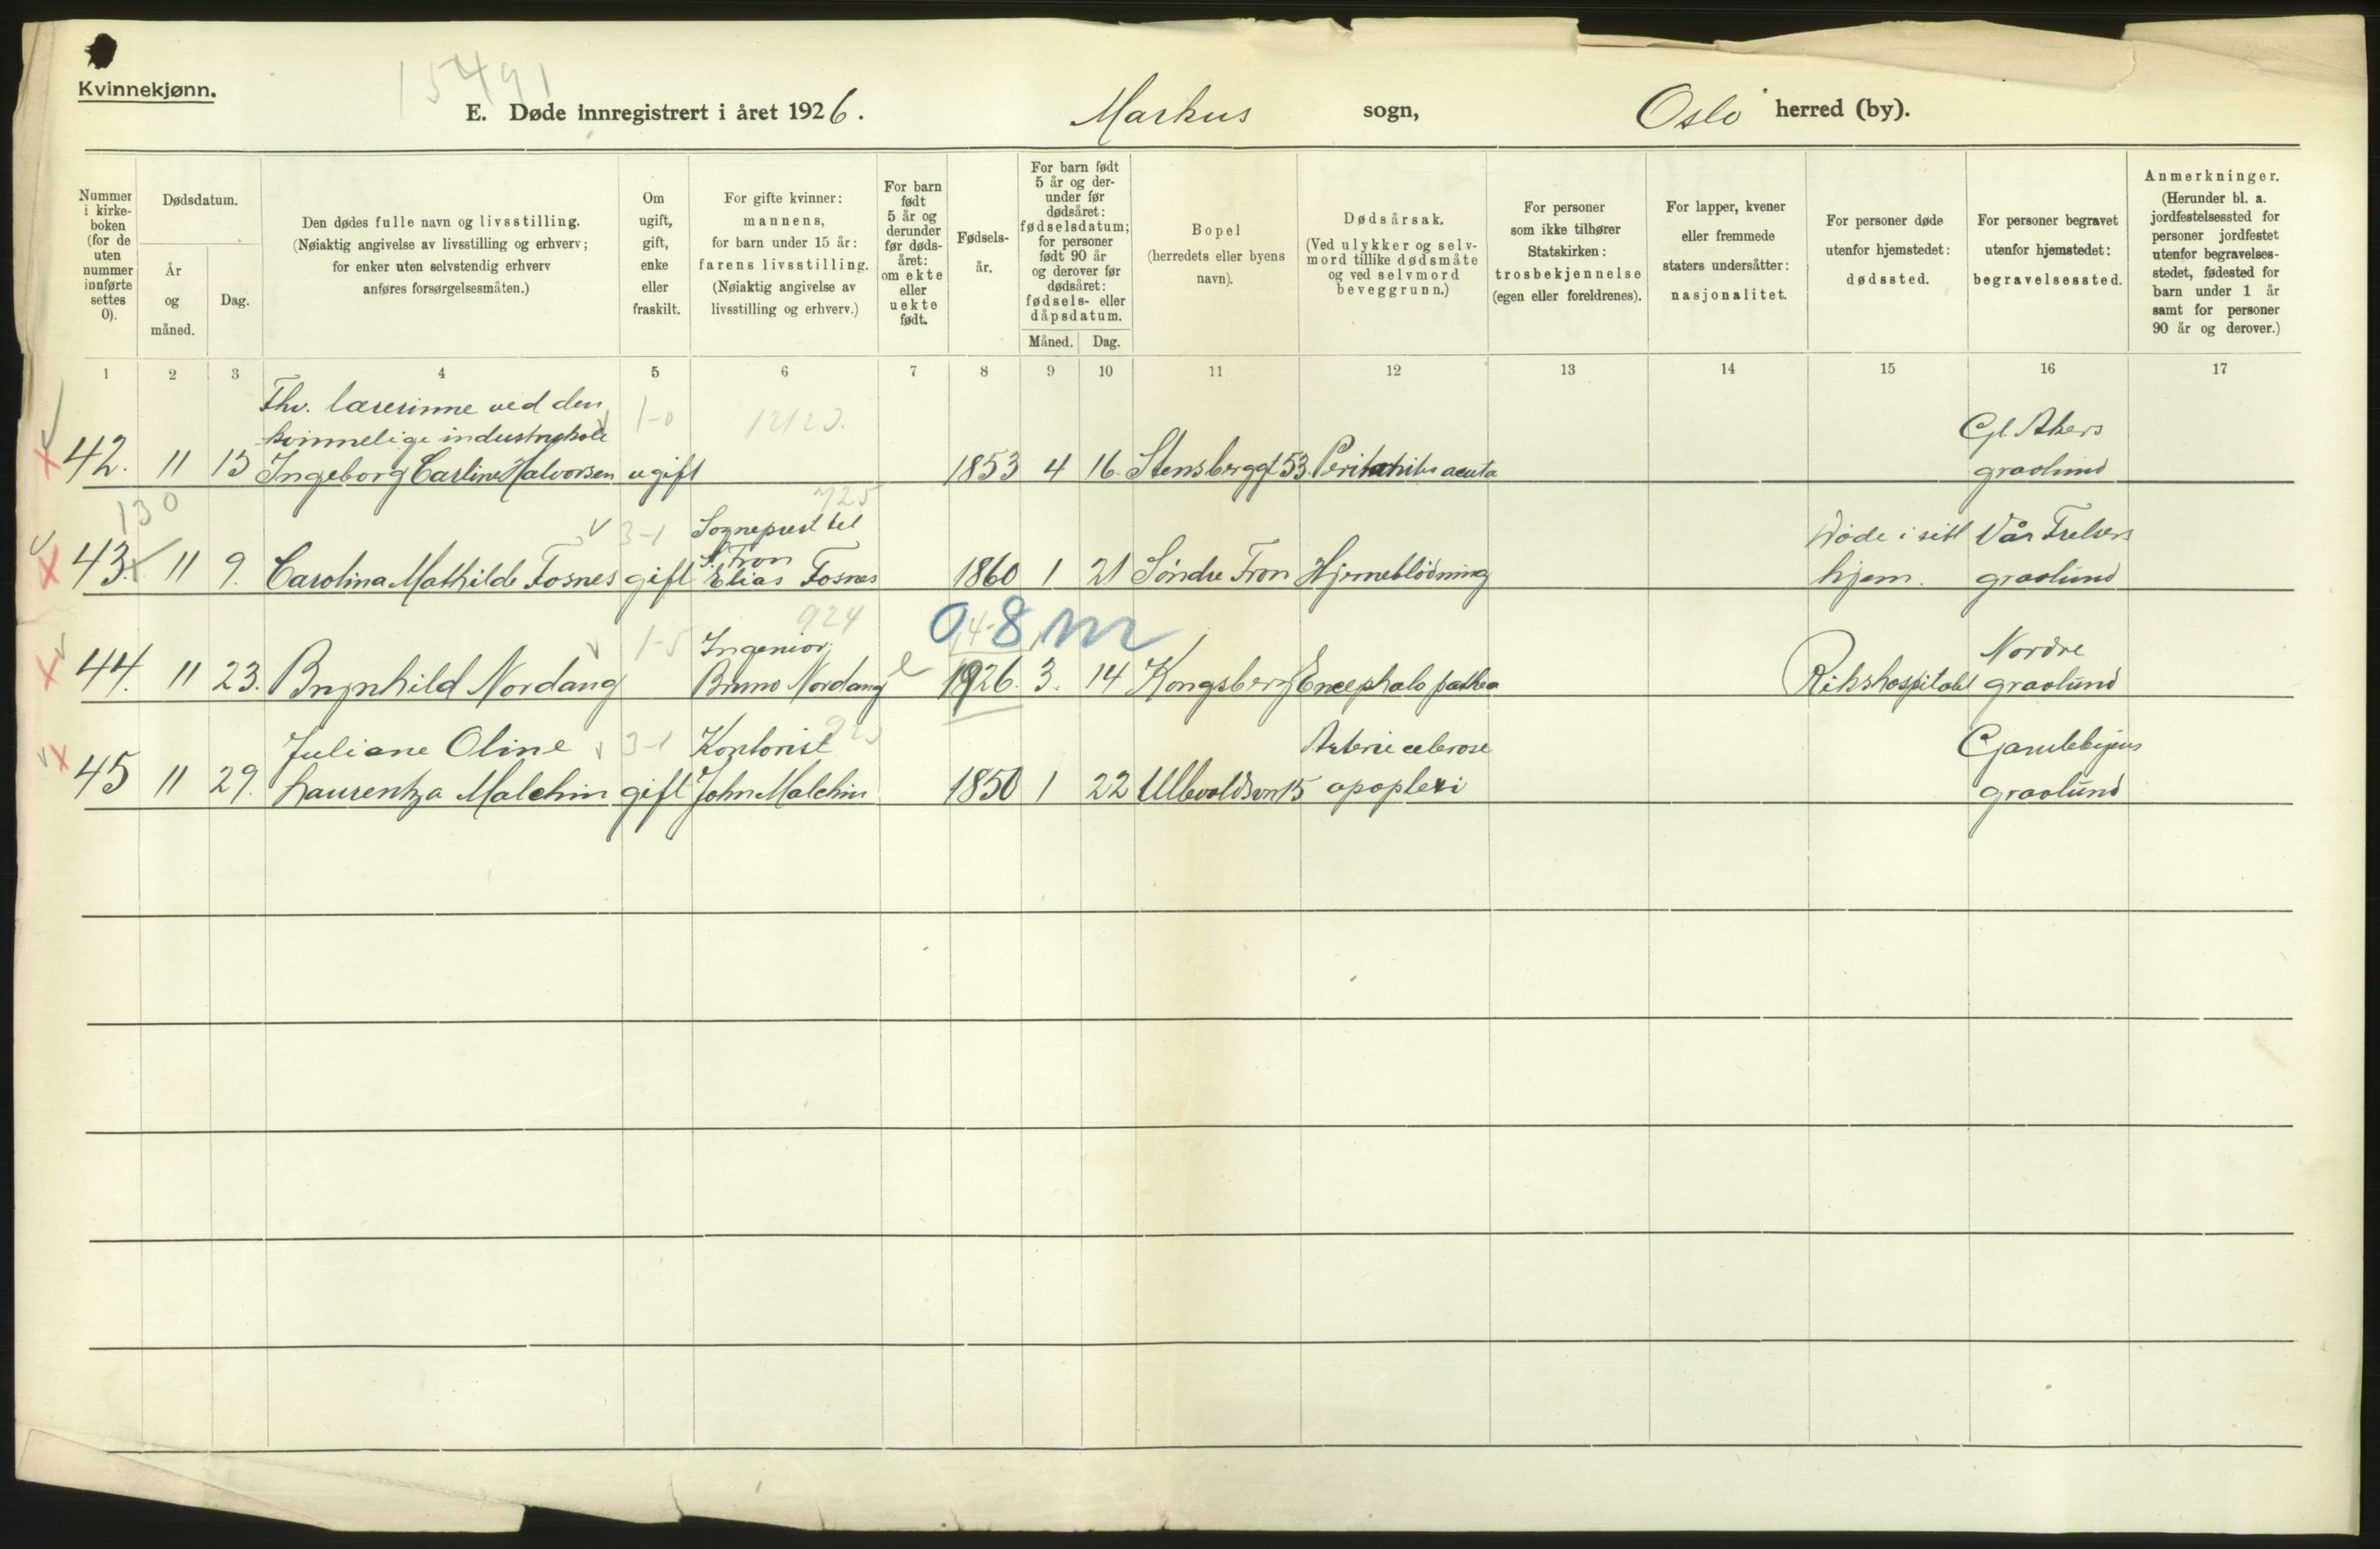 Kvinnekjønn.
15491
E. Døde innregistrert i året 1926. Markus sogn, Oslo herred (by).
Nummer i kirke-boken (for de uten nummer innførte settes 0).
Dødsdatum.
År og måned.
Dag.
Den dødes fulle navn og livsstilling.
(Nøiaktig angivelse av livsstilling og erhverv;
for enker uten selvstendig erhverv
anføres forsørgelsesmåten.)
Om
ugift,
gift,
enke
eller
fraskilt.
For gifte kvinner:
mannens,
for barn under 15 år:
farens livsstilling.
(Nøiaktig angivelse av
livsstilling og erhverv.)
For barn
født
5 år og
derunder
før døds-
året:
om ekte
eller
uekte
født.
Fødsels-
år.
For barn født
5 år og der-
under før
dødsåret:
fødselsdatum;
for personer
født 90 år
og derover før
dødsåret:
fødsels- eller
dåpsdatum.
Måned. Dag.
Bopel
(herredets eller byens
navn).
Dødsårsak.
(Ved ulykker og selv-
mord tillike dødsmåte
og ved selvmord
beveggrunn.)
For personer
som ikke tilhører
Statskirken:
trosbekjennelse
(egen eller foreldrenes).
For lapper, kvener
eller fremmede
staters undersåtter:
nasjonalitet.
For personer døde
utenfor hjemstedet:
dødssted.
For personer begravet
utenfor hjemstedet:
begravelsessted.
Anmerkninger.
(Herunder bl. a.
jordfestelsessted for
personer jordfestet
utenfor begravelses-
stedet, fødested for
barn under 1 år
samt for personer
90 år og derover.)
1 2 3 4 5 6 7 8 9 10 11 12 13 14 15 16 17
Fhv. lærerinne ved den
kvinnelige industriskole 1-0 Gl. Akers
42. 11 13 Ingeborg Carline Halvorsen ugift 1853 4 16. Stensberggt 53. Peritonitis acuta gravlund
130 725
3-1 Sogneprest til Døde i sitt Vår Frelsers
S. Fron
43. 11 9. Carolina Mathilde Fosnes gift Elias Fosnes 1860 1 21 Søndre Fron Hjerneblødning hjem. gravlund
924 0 8 m
1-5 Ingeniør Nordre
44. 11 23. Brynhild Nordang Bruno Nordang e 1926. 3. 14 Kongsberg Encephalopathia Rikshospitalet gravlund
Juliane Oline 3-1 Kontorist Arterie celerose Gamlebyens
45 11 29. Laurentza Malchin gift John Malchin 1850 1 22 Ullevoldsvn 15 apoplexi gravlund